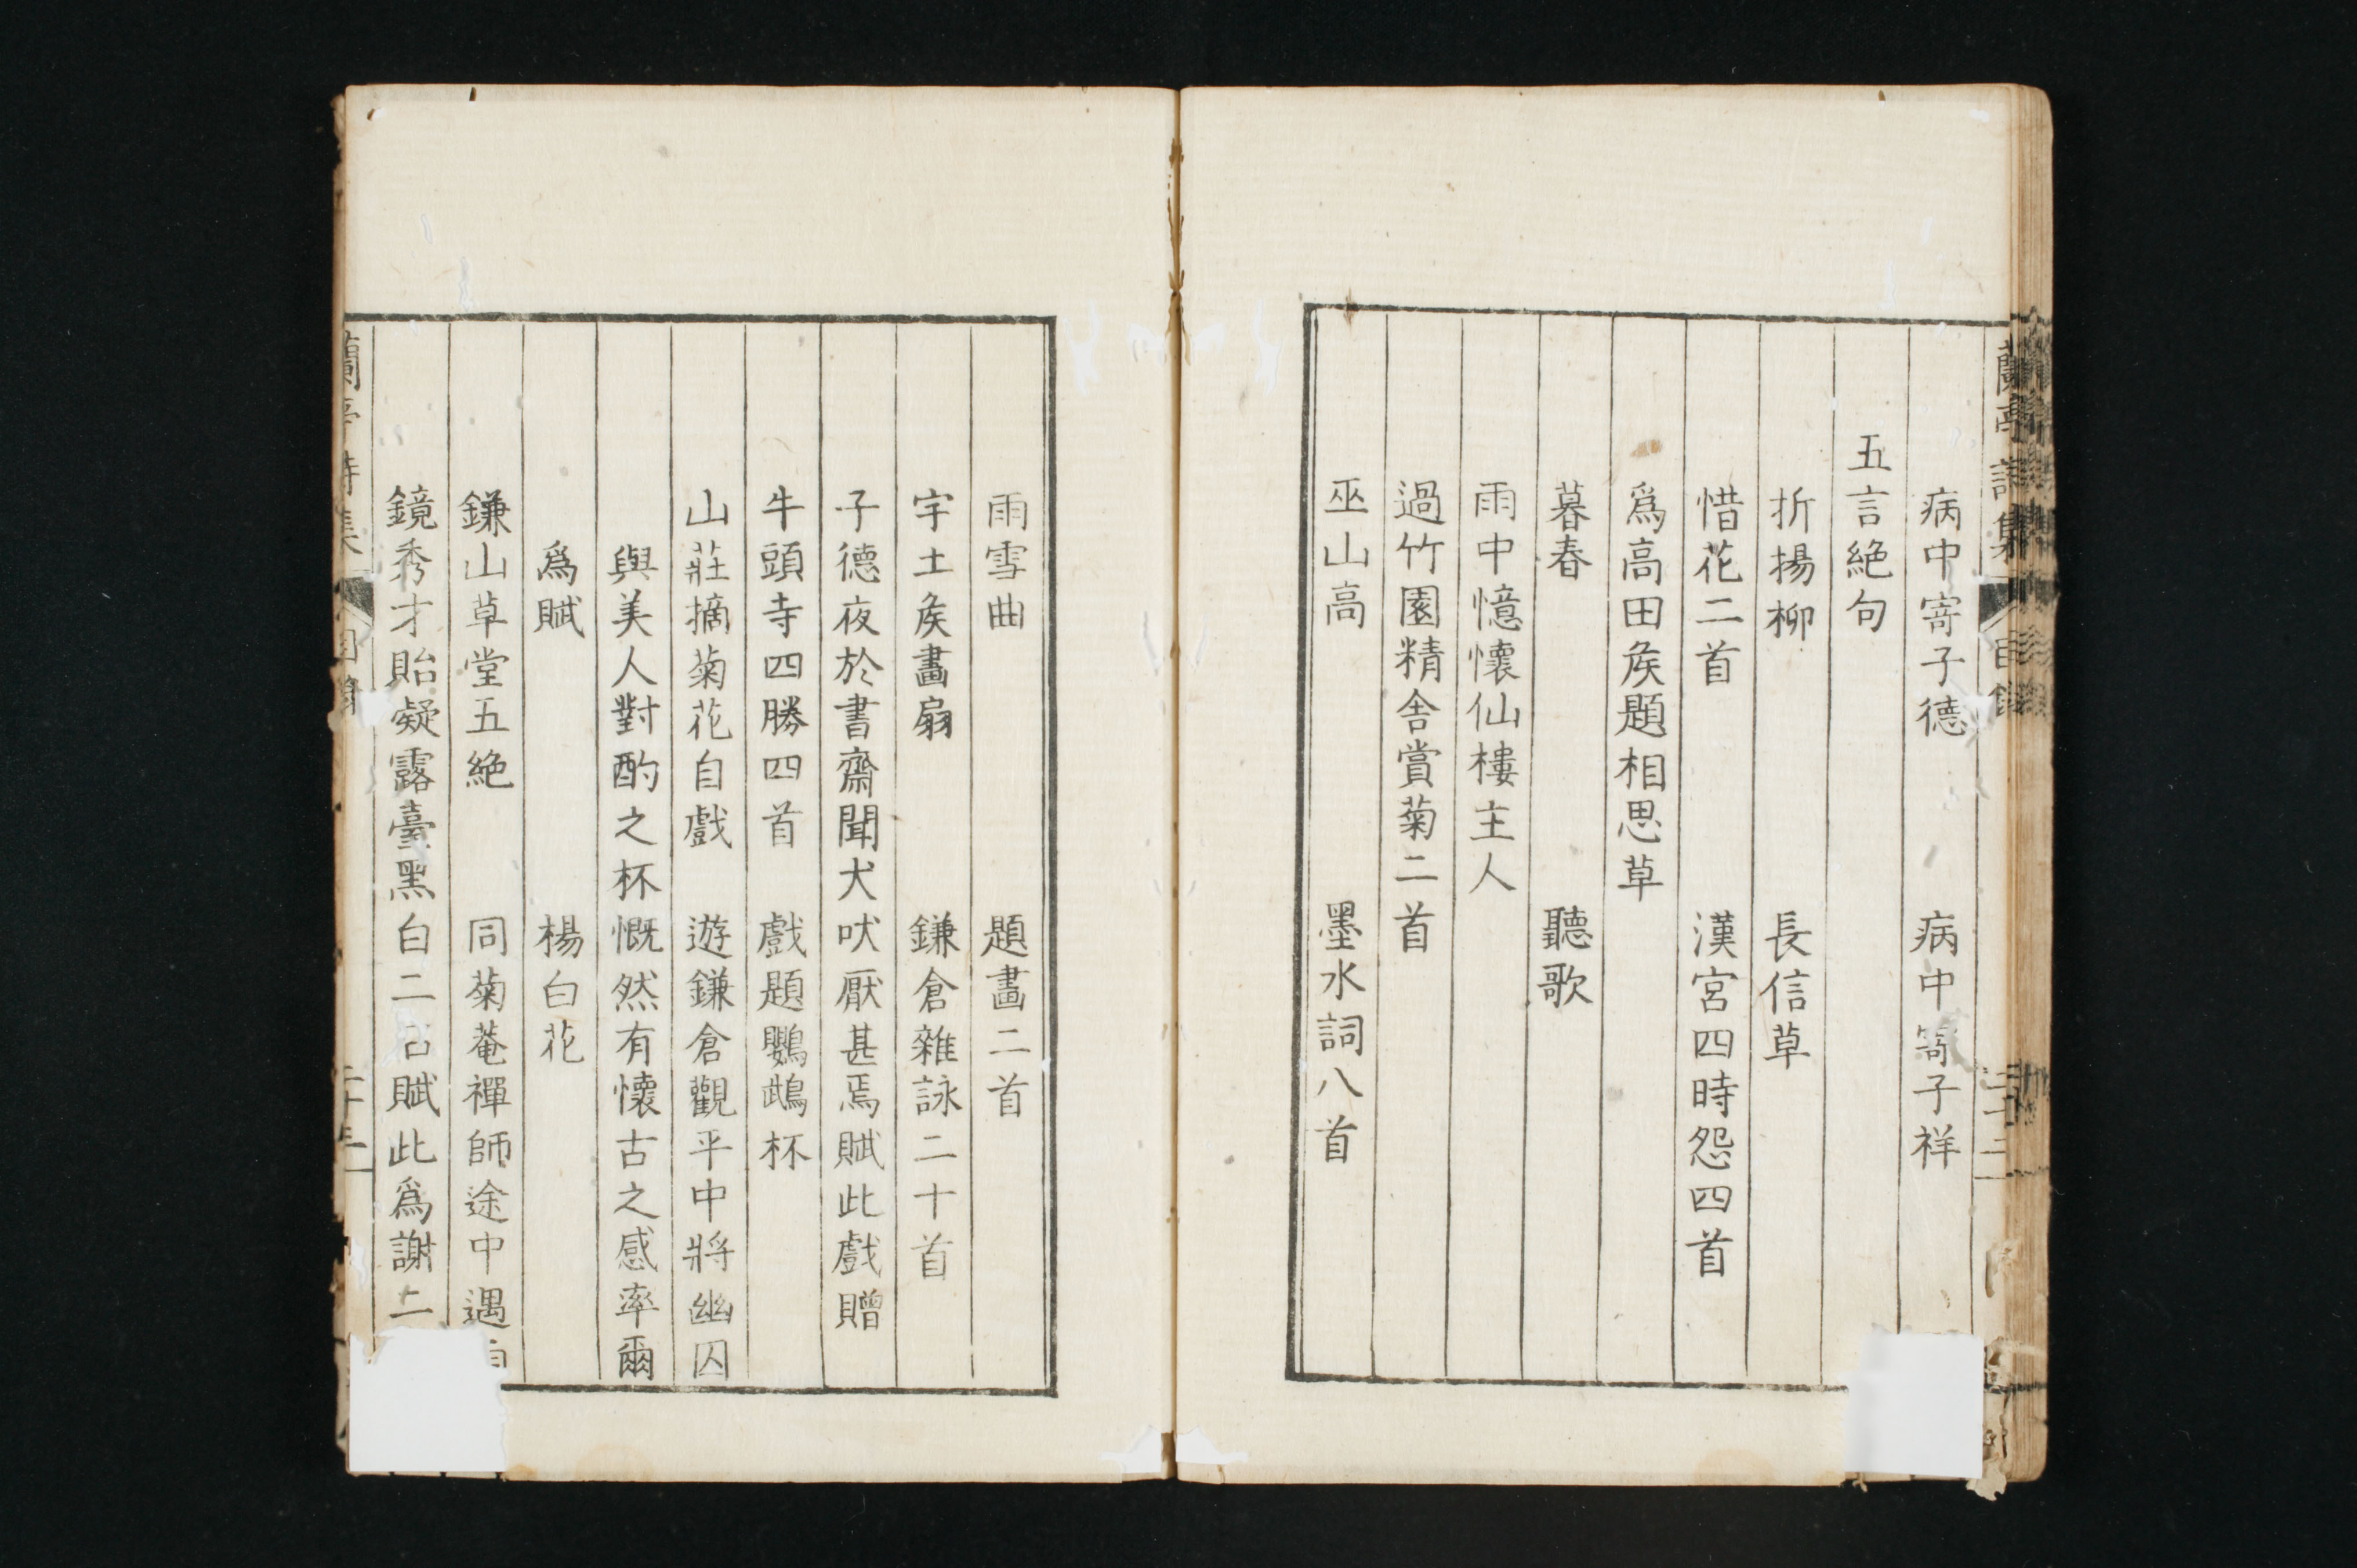 蘭亭詩集 目錄 二十二
病中寄子德 病中寄子祥
五言絶句
折揚柳 長信草
惜花二首 漢宮四時怨四首
爲高田矦題相思草
暮春 聽歌
雨中憶懷仙樓主人
過竹園精舎賞菊二首
巫山高 墨水詞八首
雨雪曲 題畫二首
宇土矦畫扇 鎌倉雜詠二十首
子德夜於書齋聞犬吠厭甚焉賦此戲贈
牛頭寺四勝四首 戲題鸚鵡杯
山莊摘菊花自戲 遊鎌倉觀平中將幽囚
與美人對酌之杯慨然有懷古之感率爾
爲賦 楊白花
鎌山草堂五絶 同菊菴禪師途中遇
鏡秀才貽凝露臺黑白二 賦此爲謝二
蘭亭詩集 目錄